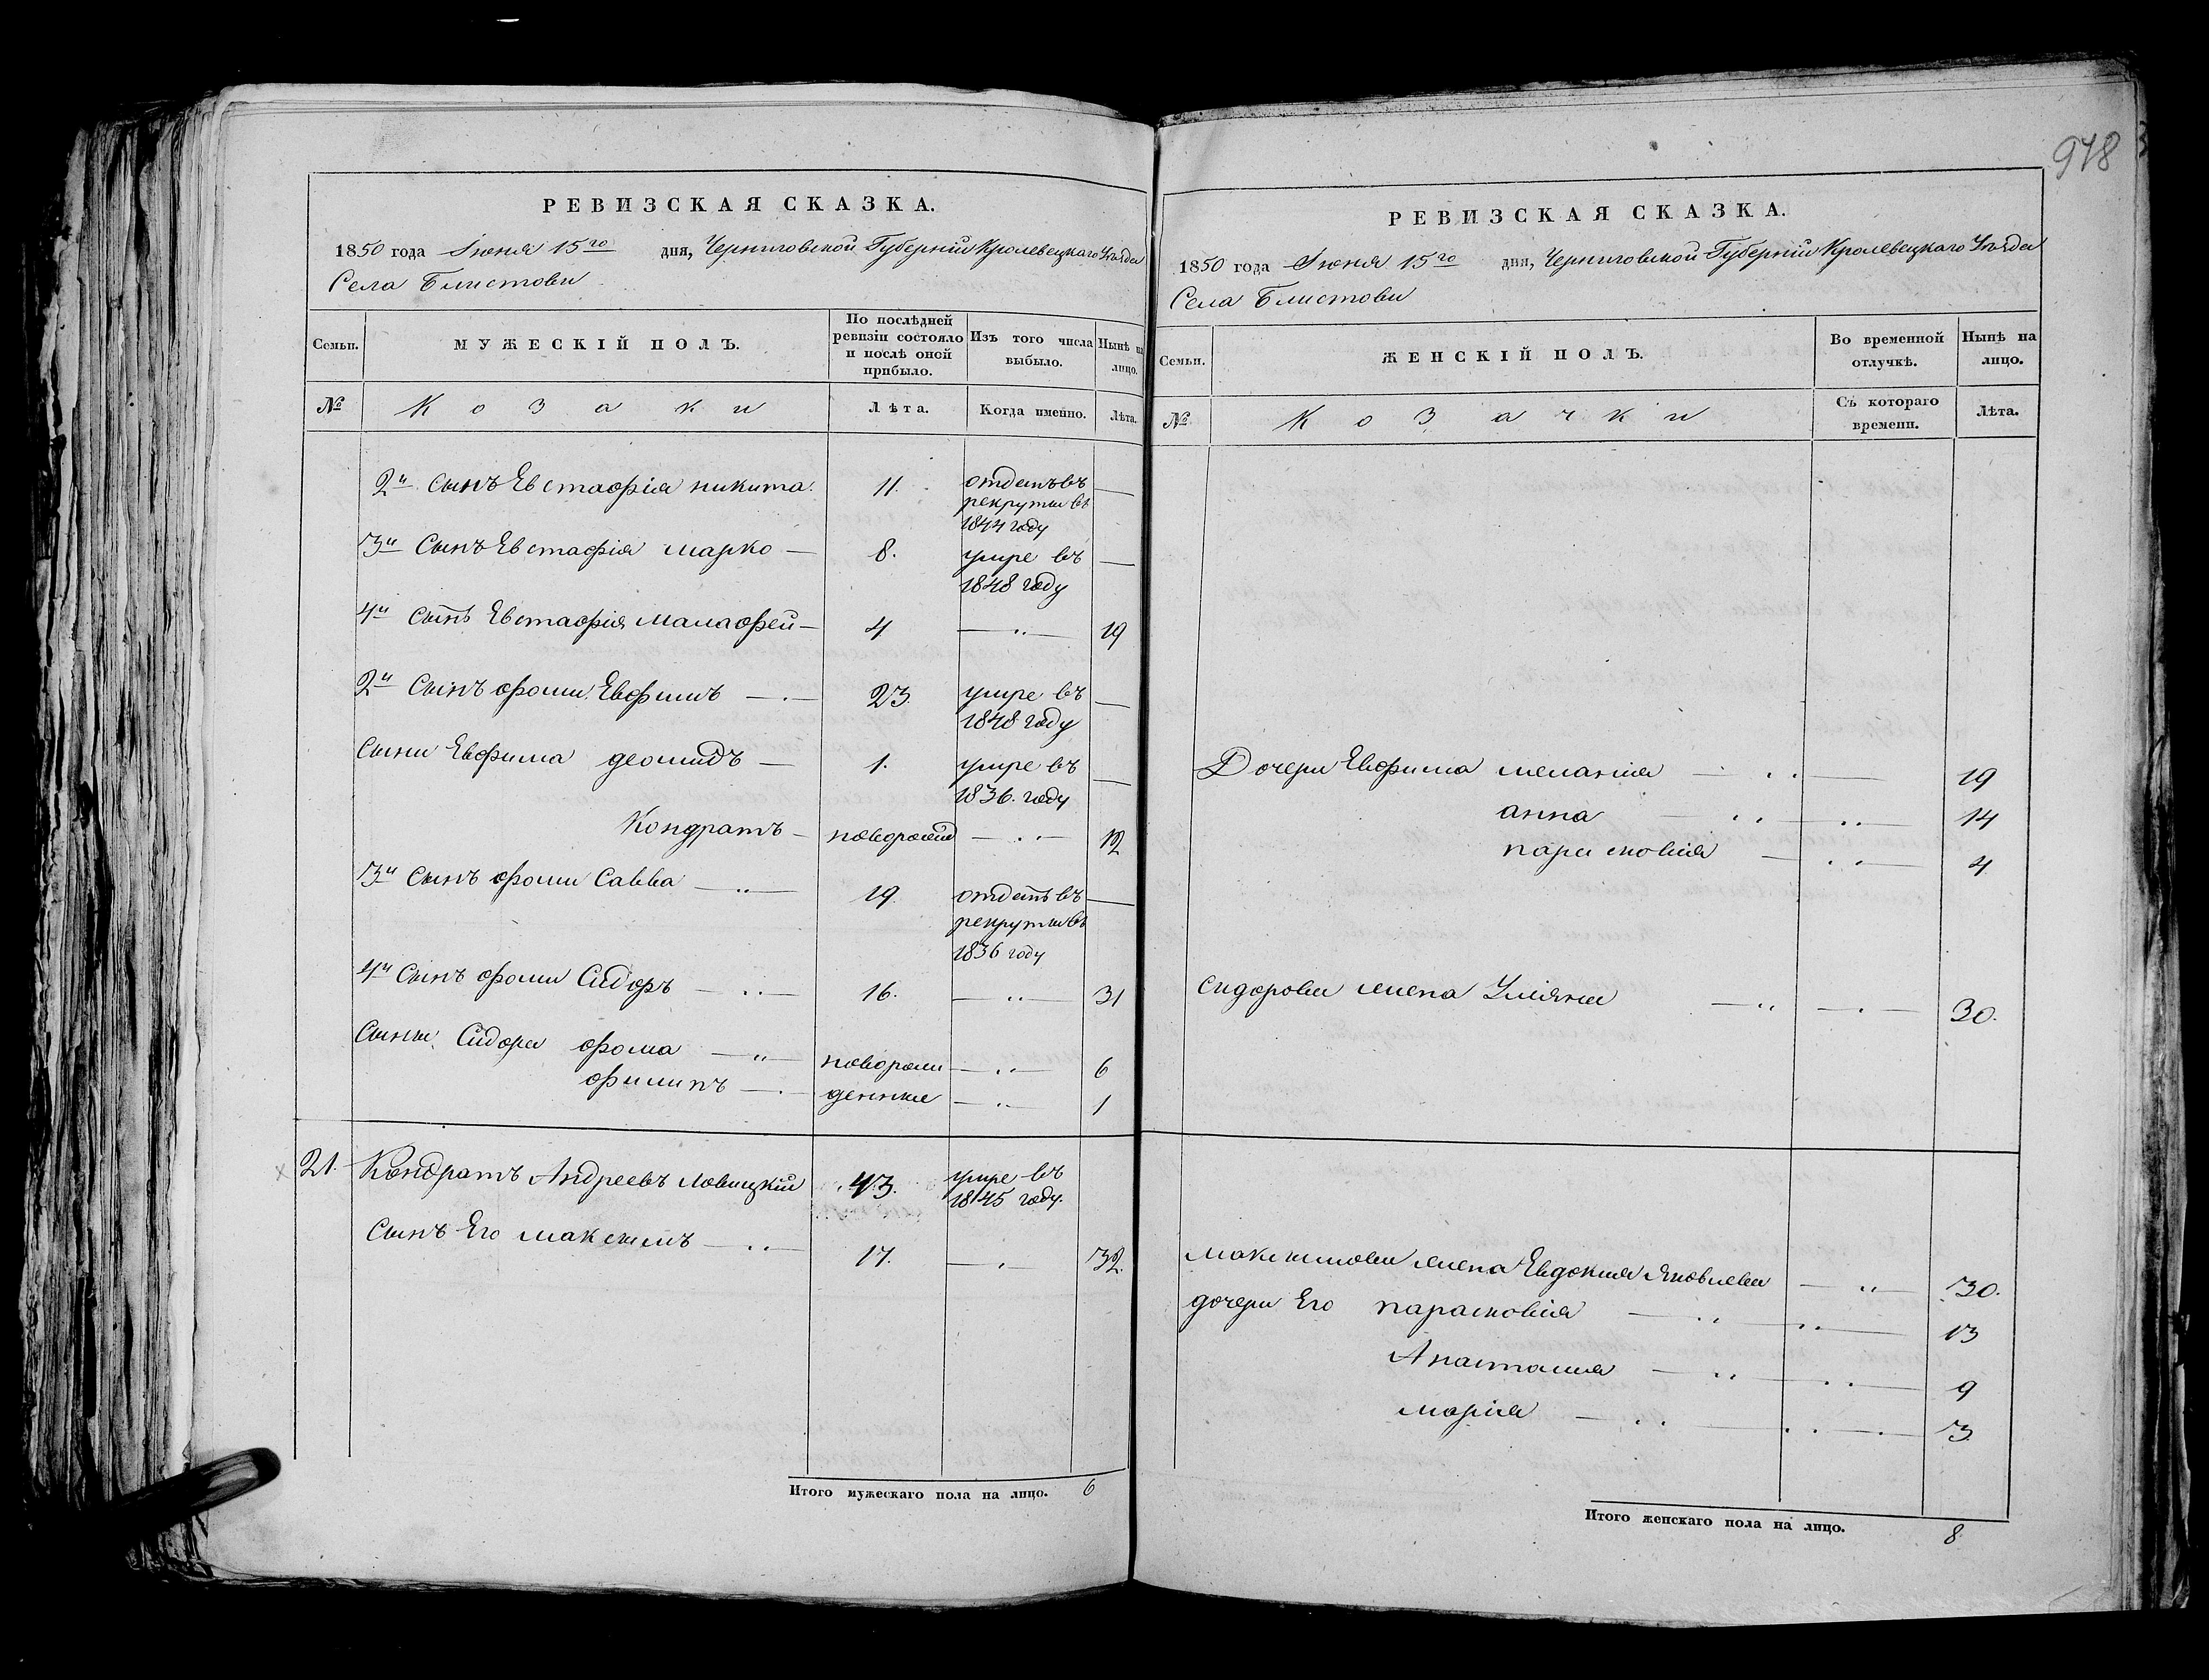 978
РЕВИЗСКАЯ СКАЗКА.
1850 года Іюня 15го дня, Черниговской Губерніи Кролевецкаго Уѣзда
Села Блистови
Семьи.
МУЖЕСКІЙ ПОЛЪ.
По послѣдней ревизіи состояло и послѣ оной прибыло.
Изъ того числа выбыло.
Нынѣ на лицо.
№
Козаки
Лѣта.
Когда именно.
Лѣта.
2й сынъ Евстафія никита 11. отданъ въ
рекруты въ
1844 году
3й Сынъ Евстафія марко — 8. умре въ —
1848 году
4й Сынъ Евстафія Малафей — 4 — 19
2й Сынъ фомы Евфимъ — 23. умре въ —
1848 году
Сыни Евфима деомидъ — 1. умре въ —
1836. году
Кондратъ — новорожд — 12
3й Сынъ фомы Савва — 19. отданъ въ —
рекруты въ
1836 году
4й Сынъ фомы Сидоръ — 16. — 31
Сыны Сидора фома — новорож — 6
филипъ — денные — 1
21. Кондратъ Андреевъ Ловицкій 43. умре въ
1845 году.
Сынъ Его максимъ — 17. — 32.
Итого мужескаго пола на лицо. 6
РЕВИЗСКАЯ СКАЗКА.
1850 года Іюня 15го дня, Черниговской Губерніи Кролевецкаго Уѣзда
Села Блистови
Семьи.
ЖЕНСКІЙ ПОЛЪ.
Во временной отлучкѣ.
Нынѣ на лицо.
№
Козачки
Съ котораго времени.
Лѣта.
Дочери Евфима меланія — 19
анна — 14
парасковія — 4
Сидорова жена Уліяна — 30.
максимова жена Евдокия Яковлева — 30.
дочери Его парасковія — 13
Анастасия — 9
марія — 3
Итого женскаго пола на лицо. 8